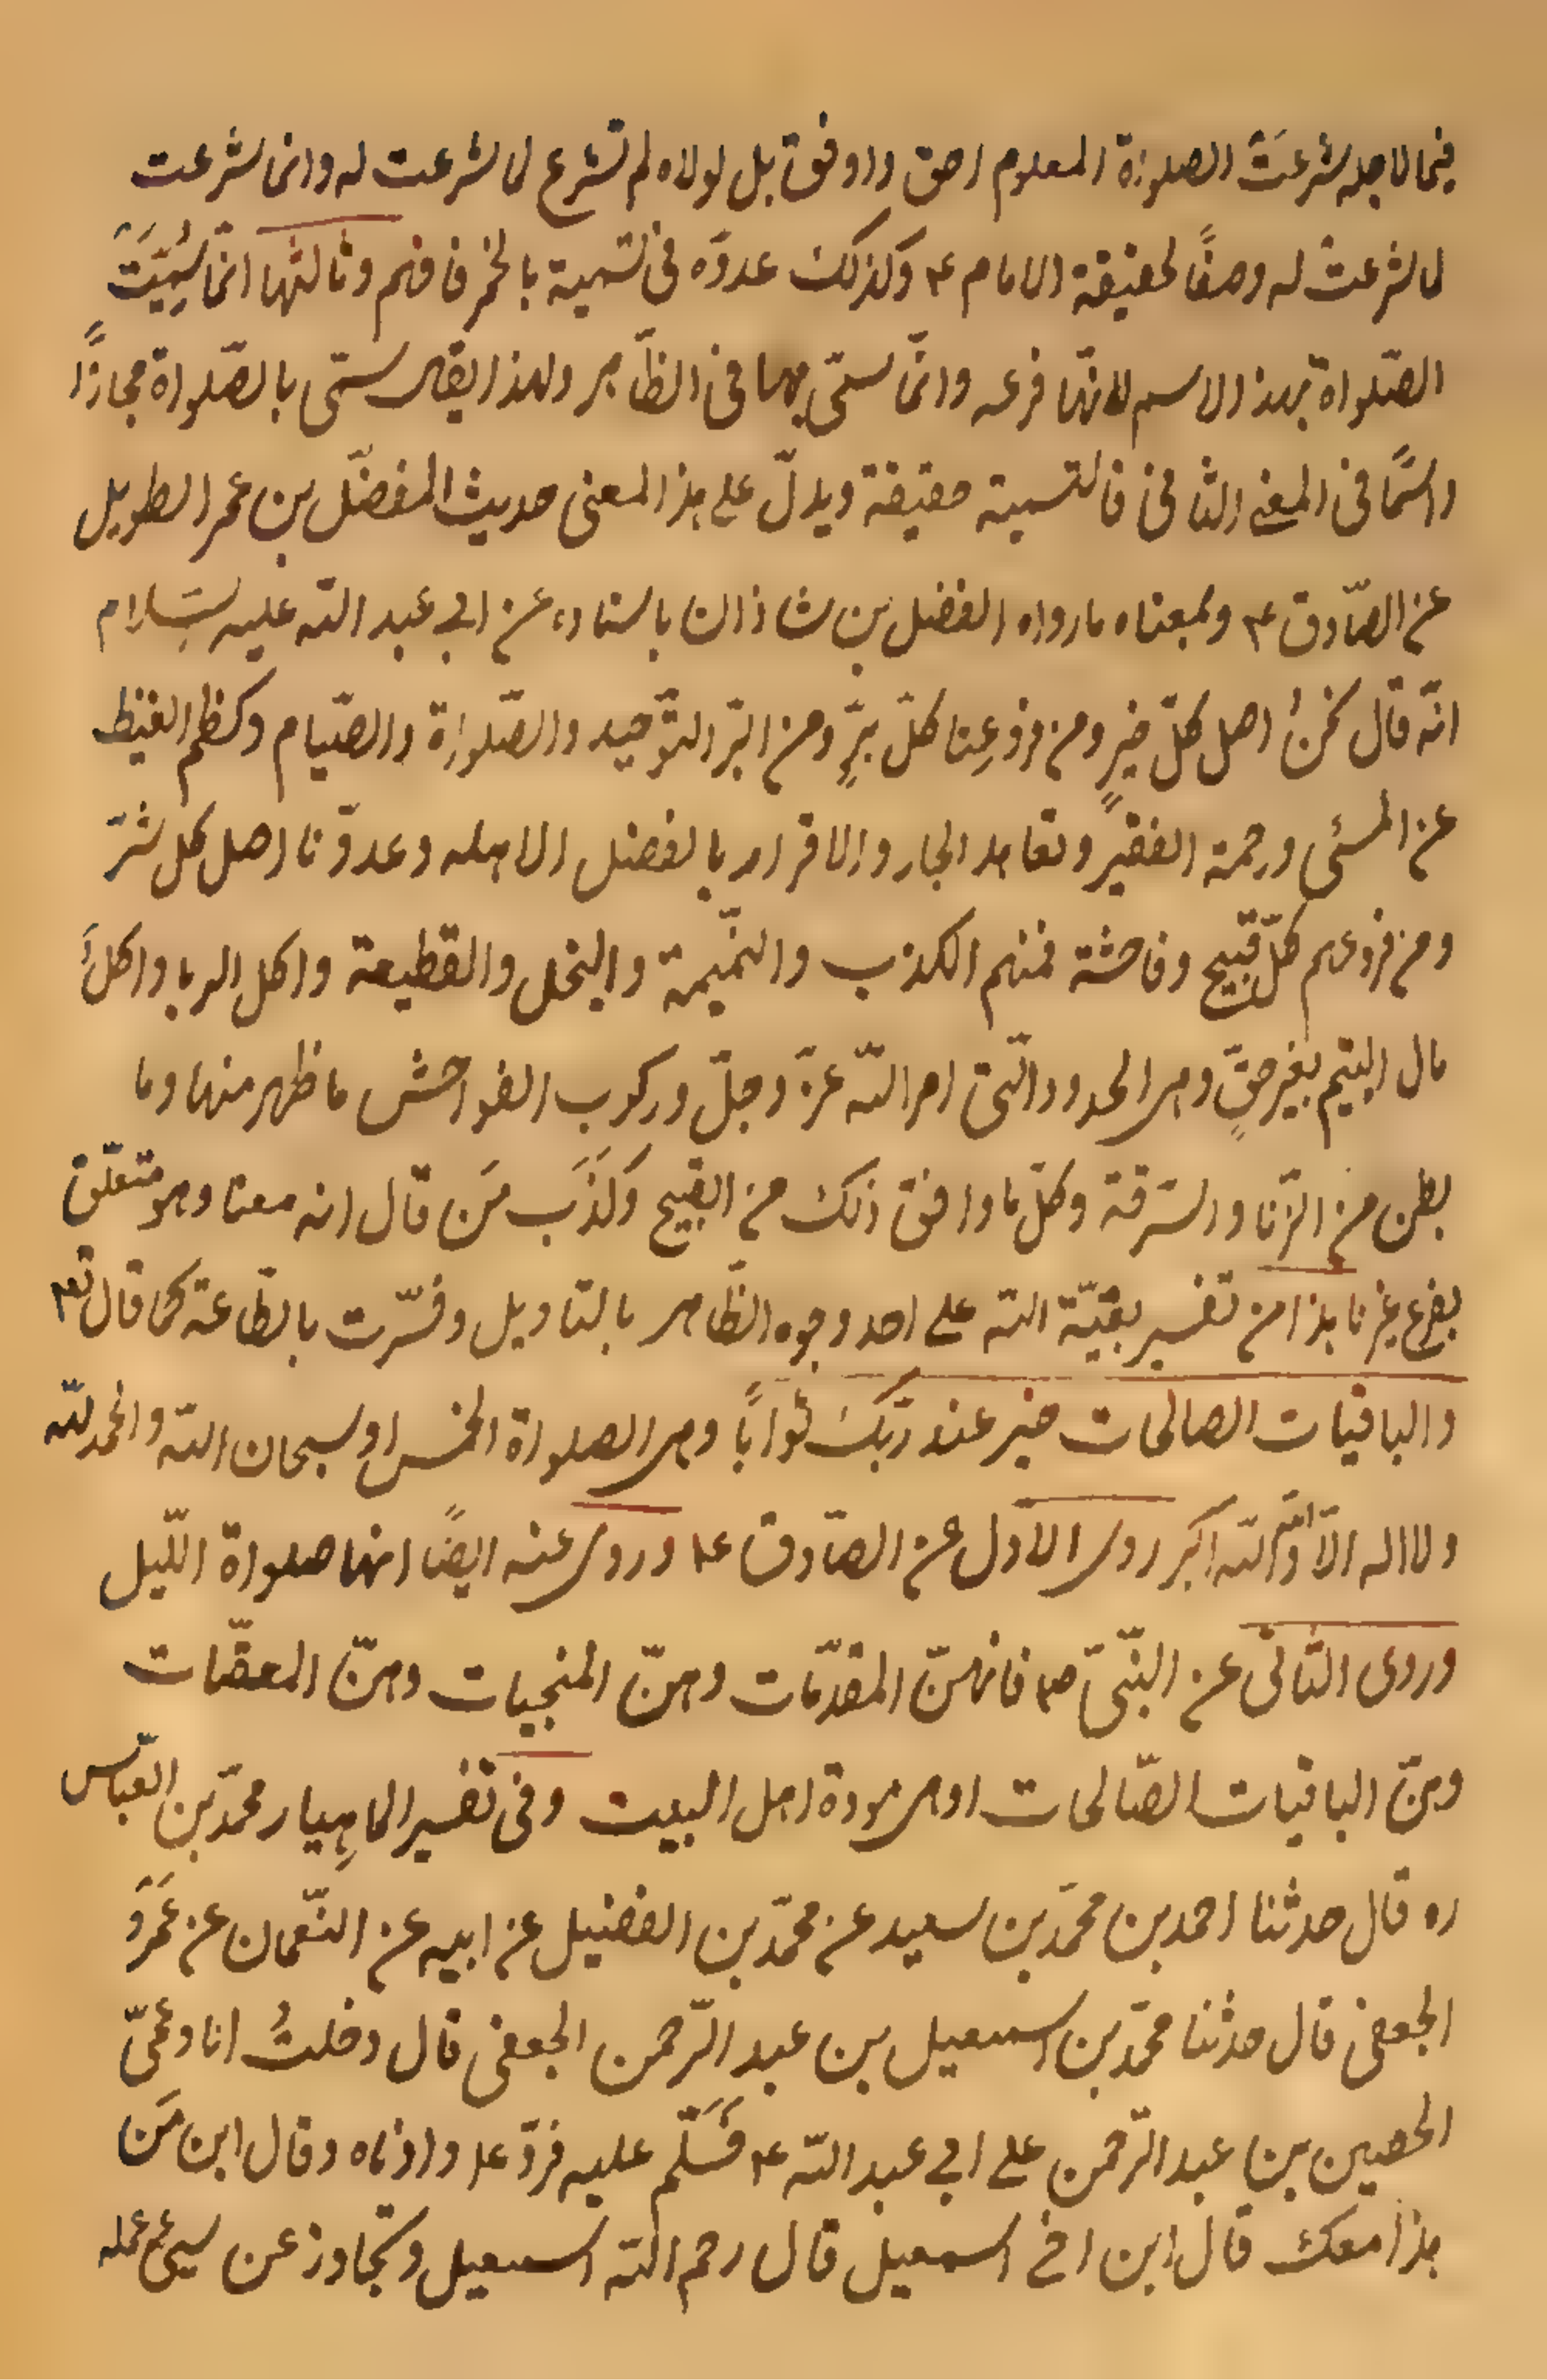 فيما لاجله شرعت الصلوة المعلوم احق واوفق بل لولاه لم تشرع لما شرعت له وانما شرعت
لما شرعت له وصفًا لحقيقة الامام ع وكذلك عدوّه في تسمية بالخمر فافهم وثالثها انّما سُمِّيَت
الصّلواة بهذا الاسم لانّها فرعه وانّما سمّى بها في الظّاهر ولهذا يقال سمّى بالصّلواة مجازًا
وامّا في المعنى الثاني فالتسمية حقيقة ويدلّ على هذا المعنى حديث المفضّل بن عمر الطويل
عن الصّادق ع وبمعناه ما رواه الفضل بن شاذان باسناده عن ابي عبد اللّه عليه السّلام
انّه قال نحنُ اصل كلّ خيرٍ ومن فروعِنا كلّ برٍّ ومن البّر التوّحيد والصّلواة والصّيام وكظم الغيظ
عن المسئ ورحمة الفقير وتعاهد الجار والاقرار بالفضل الاهله وعدوّنا اصل كل شرّ
ومن فروعهم كلّ قبيح وفاحشة فمنهم الكذب والنّميمة والبخل والقطيعة واكل الربا واكلَ
مال اليتيم بغير حقٍّ وهى الحدود الّتى امر اللّه عزّ وجلّ وركوب الفواحش ما ظهر منها وما
بطن من الزّنا والسّرقة وكلّ ما وافق ذلك من القبيح وكَذَبَ مَن قال انه معنا وهو متعلّق
بفرع غيرنا هذا من تفسير بقيّة اللّه على احد وجوه الظّاهر بالتاويل وفسّرت بالطّاعة كما قال تع
والباقيات الصالحات خير عند رّبك ثوابًا وهى الصلواة الخمس او سبحان اللّه والحمد للّه
ولا اله الّا اللّه واللّه اكبر روى الاوّل عن الصّادق ع وروى عنه ايضًا انها صلواة اللّيل
وروى الثّانى عن النّبىّ ص فانهنّ المقدّمات وهنّ المنجيات وهنّ المعقّبات
وهنّ الباقيات الصّالحات او هى مودة اهل البيت وفى تفسير الماهِيار محمّد بن العبّاس
ره قال حدثنا احمد بن محمّد بن سعيد عن محمّد بن الفضيل عن ابيه عن النّعمان عن عَمَروَ
الجعفى قال حدثنا محمّد بن اسمعيل بن عبد الرّحمن الجعفى قال دخلتُ انا وعمّى
الحصين بن عبد الرّحمن على ابي عبد اللّه ع فَسَلَّم عليه فردّ ع وادناه وقال ابن مَن
هذا معك قال ابن اخى اسمعيل قال رحم اللّه اسمعيل وتجاوز عن سيئ عمله